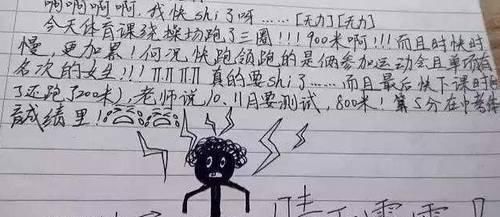 啊啊啊啊,我快shi了呀……[无力][无力]
今天体育课绕操场跑了三圈!!!900米啊!!!而且时快时
慢,更加累!何况,快跑领跑的是俩参加运动会且单项有
名次的女生!!!TT TT TT TT 真的要shi了……而且最后快下课时
了还跑了200米),老师说,10、11月要测试,800米!算5分在中考
成绩里!